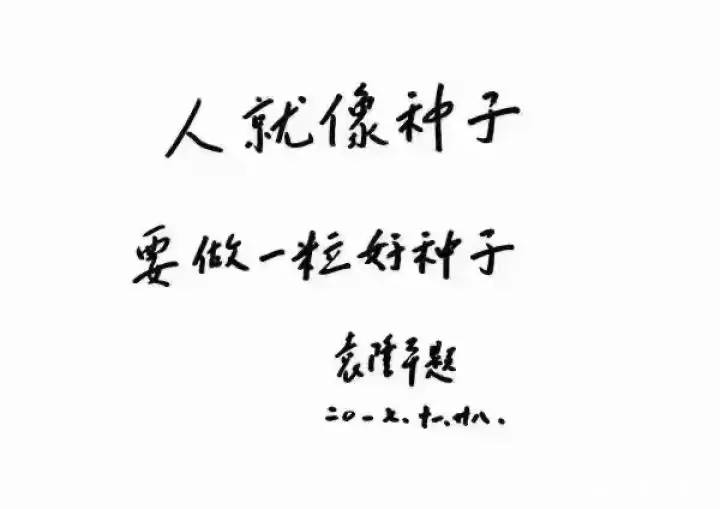 人就像种子
要做一粒好种子
袁隆平题
二〇一七、十一、廿八.